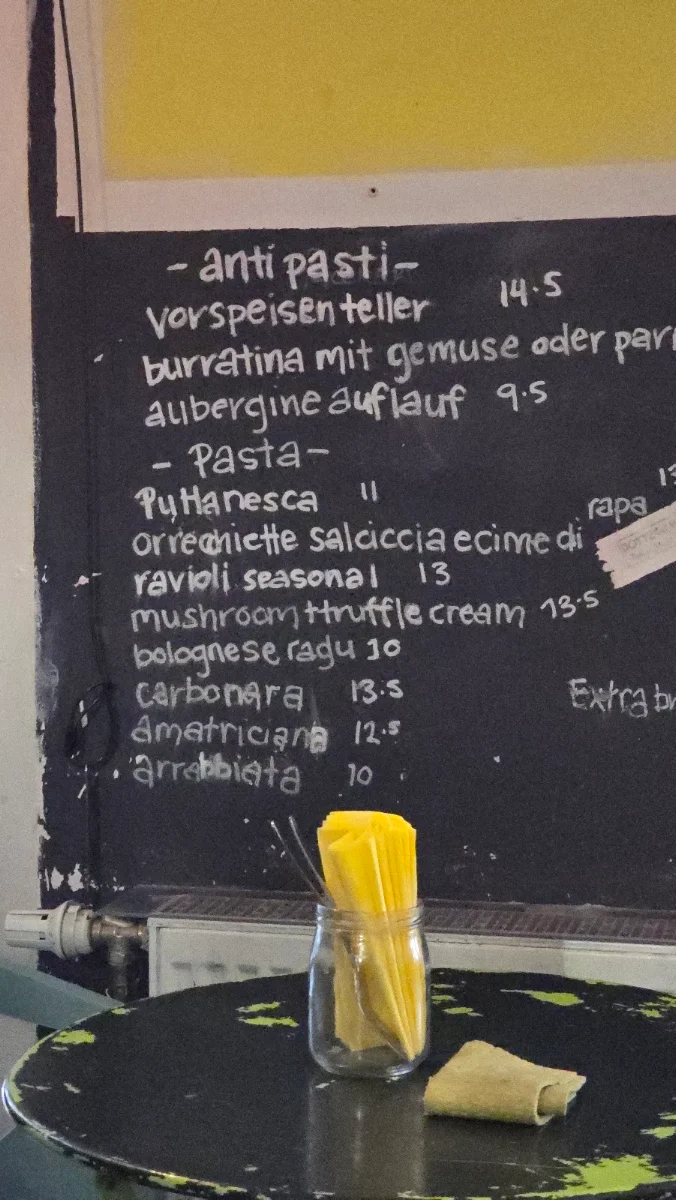 - anti pasti -
vorspeisen teller 14.5
burratina mit gemuse oder parm
aubergine auflauf 9.5
- Pasta -
Puttanesca 11
13
orrechiette salciccia e cime di rapa
ravioli seasonal 13
mushroom + truffle cream 13.5
bolognese radu 10
carbonara 13.5
Extra bu
amatriciana 12.5
arrabbiata 10